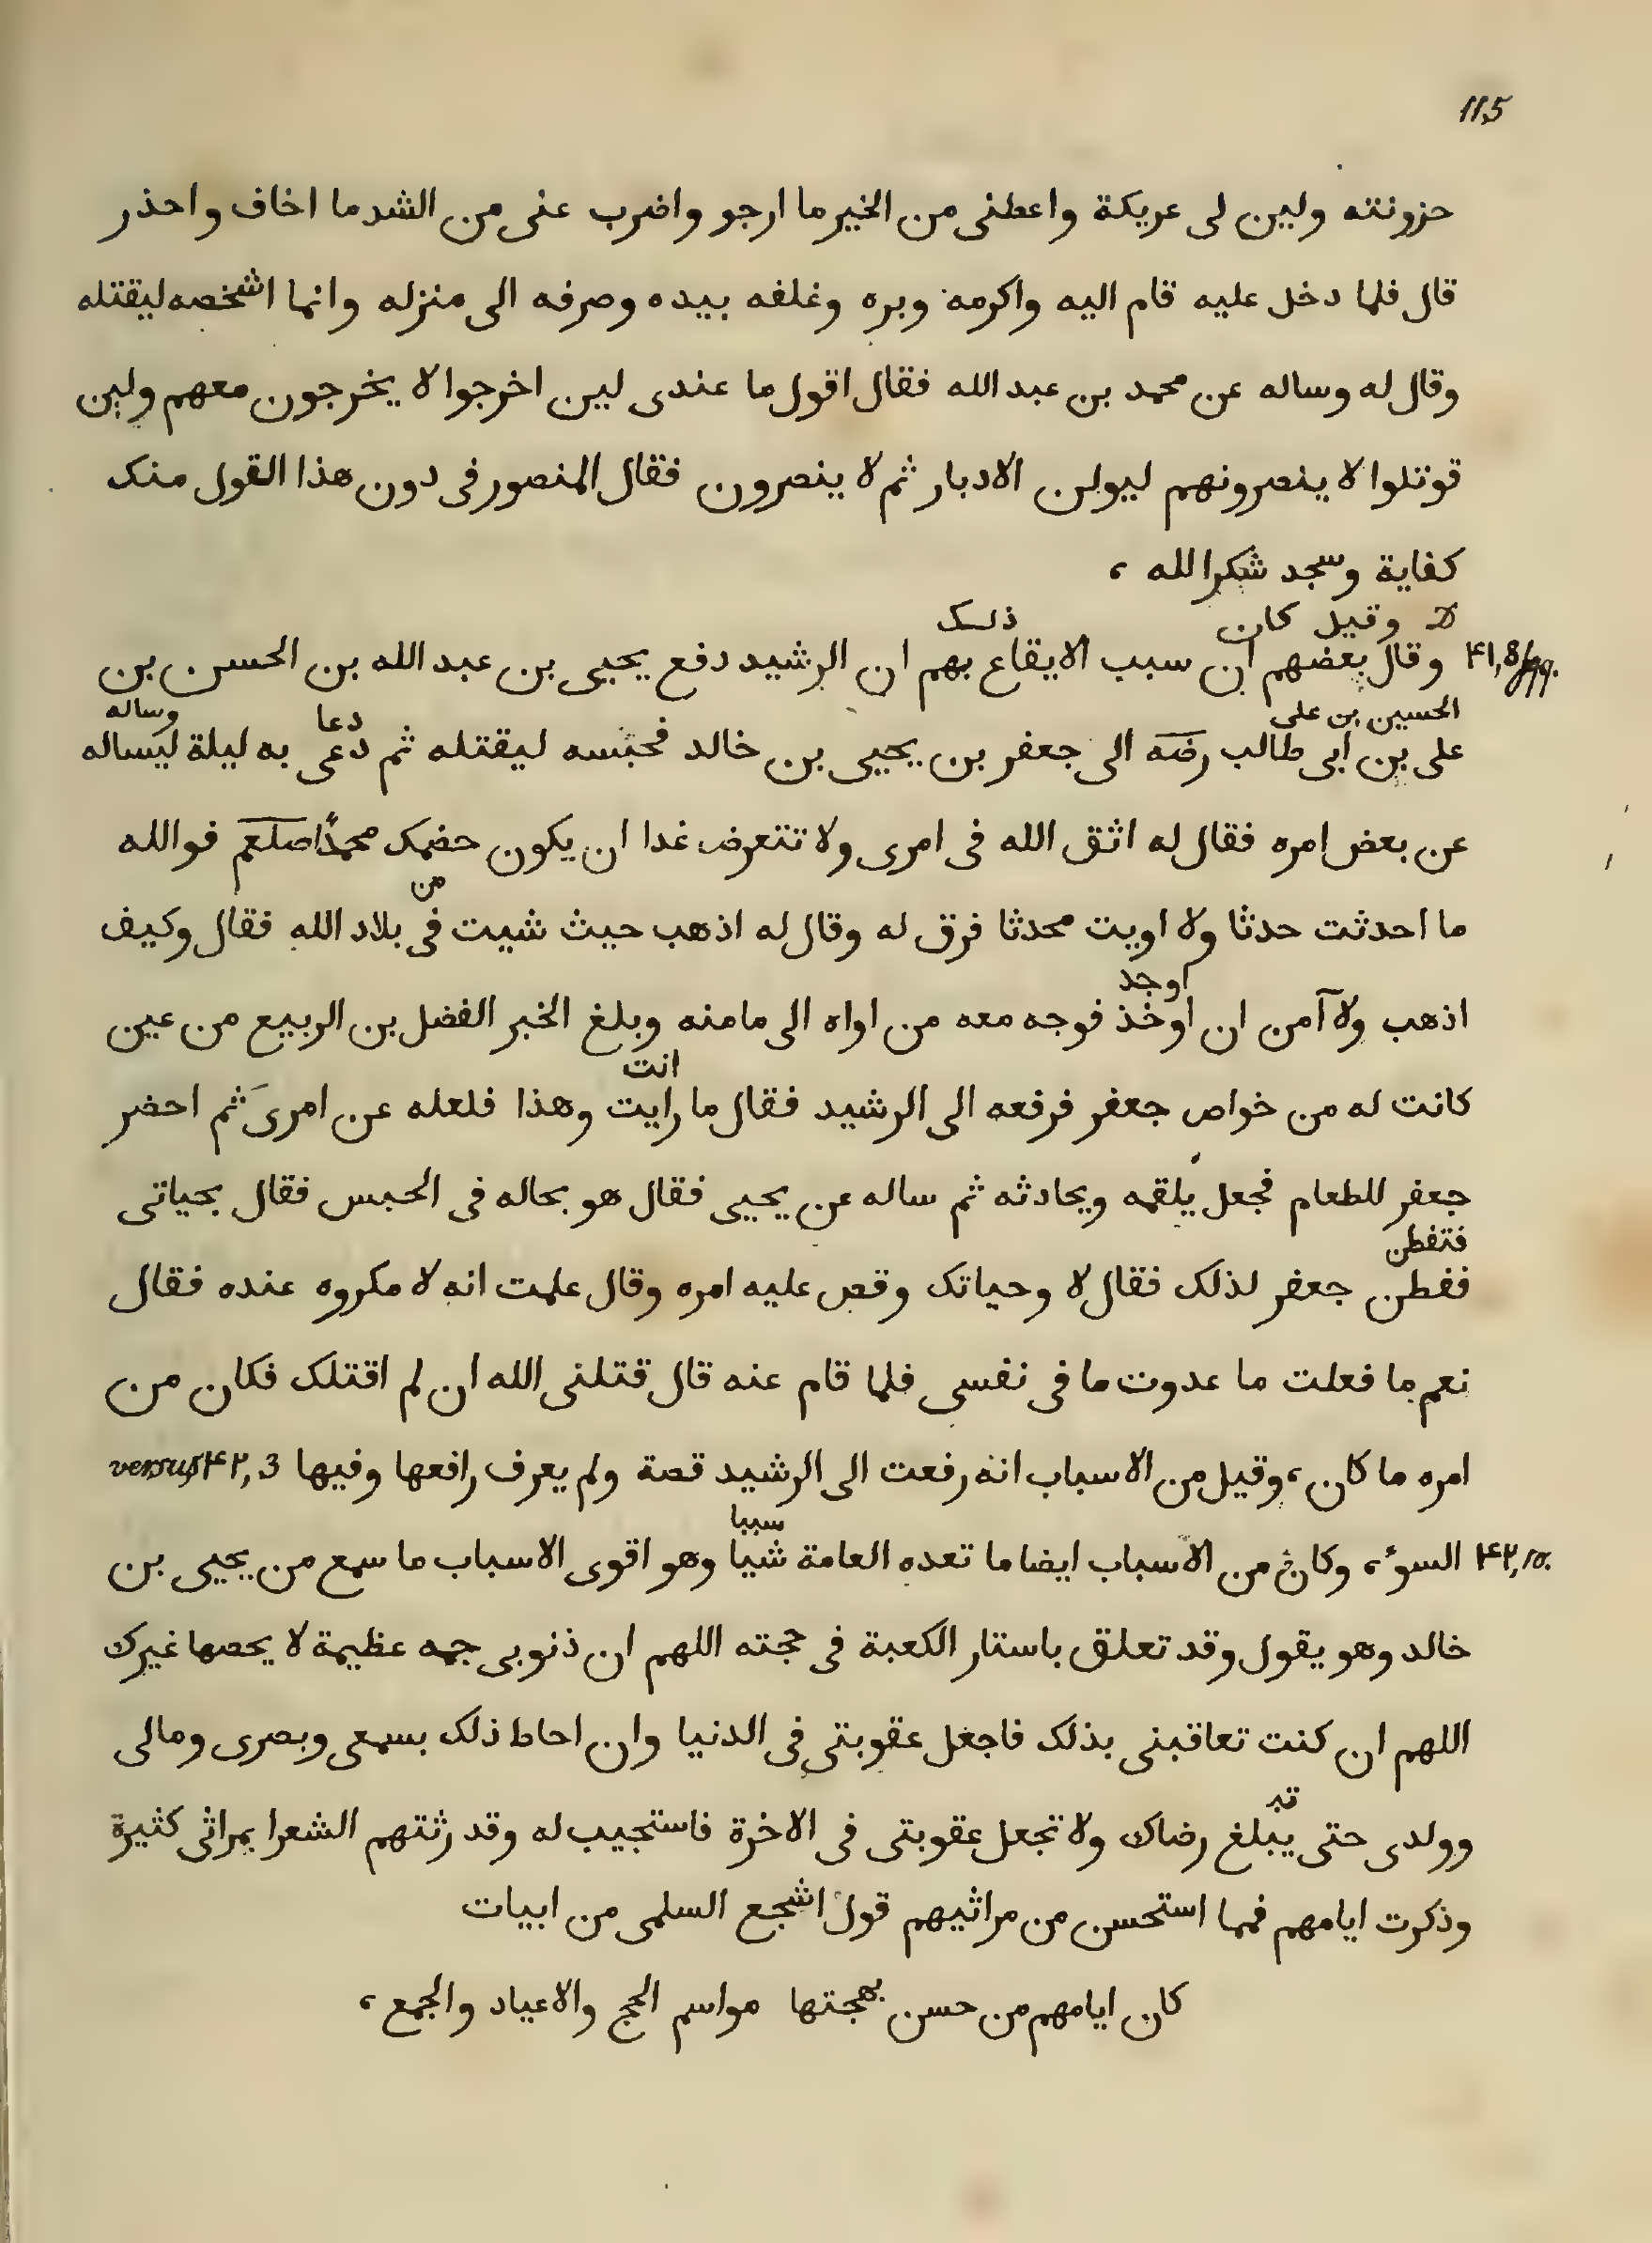 115
حزونته ولين لى عريكة واعطنى من الخير ما ارجو واضرب عنى من الشر ما اخاف واحذر
قال فلما دخل عليه قام اليه واكرمه وبره وغلفه بيده وصرفه الى منزله وانما اشخصه ليقتله
وقال له وساله عن محمد بن عبد الله فقال اقول ما عندى لين اخرجوا لا يخرجون معهم ولين
قوتلوا لا ينصرونهم ليولن الادبار ثم لا ينصرون فقال المنصور فى دون هذا القول منك
كفاية وسجد شكرا لله ،
وقيل كان ذلك
۴۱,8 وقال بعضهم ان سبب الايقاع بهم ان الرشيد دفع يحيى بن عبد الله بن الحسن بن
الحسين بن على دعا وساله
على بن ابى طالب رضه الى جعفر بن يحيى بن خالد فحبسه ليقتله ثم دعى به ليلة ليساله
عن بعض امره فقال له اثق الله فى امرى ولا تتعرض غدا ان يكون خصمك محمدًا صلعم فوالله
من
ما احدثت حدثا ولا اويت محدثا فرق له وقال له اذهب حيث شيت فى بلاد الله فقال وكيف
اوجد
اذهب ولا آمن ان اوخذ فوجه معه من اواه الى مامنه وبلغ الخبر الفضل بن الربيع من عين
انت
كانت له من خواص جعفر فرفعه الى الرشيد فقال ما رايت وهذا فلعله عن امرى ثم احضر
جعفر للطعام فجعل يلقمه ويحادثه ثم ساله عن يحيى فقال هو بحاله فى الحبس فقال بحياتى
فتفطن
ففطن جعفر لذلك فقال لا وحياتك وقص عليه امره وقال علمت انه لا مكروه عنده فقال
نعم ما فعلت ما عدوت ما فى نفسى فلما قام عنه قال قتلنى الله ان لم اقتلك فكان من
امره ما كان ، وقيل من الاسباب انه رفعت الى الرشيد قصة ولم يعرف رافعها وفيها ۴۲,3 versus
سببا
۴۲,10. السوء ، وكان من الاسباب ايضا ما تعده العامة شيا وهو اقوى الاسباب ما سمع من يحيى بن
خالد وهو يقول وقد تعلق باستار الكعبة فى حجته اللهم ان ذنوبى جمه عظيمة لا يحصها غيرك
اللهم ان كنت تعاقبنى بذلك فاجعل عقوبتى فى الدنيا وان احاط ذلك بسمعى وبصرى ومالى
وولدى حتى يبلغ رضاك ولا تجعل عقوبتى فى الاخرة فاستجيب له وقد رثتهم الشعرا بمراثى كثيرة
وذكرت ايامهم فمما استحسن من مراثيهم قول اشجع السلمى من ابيات
كان ايامهم من حسن بهجتها مواسم الحج والاعياد والجمع ،